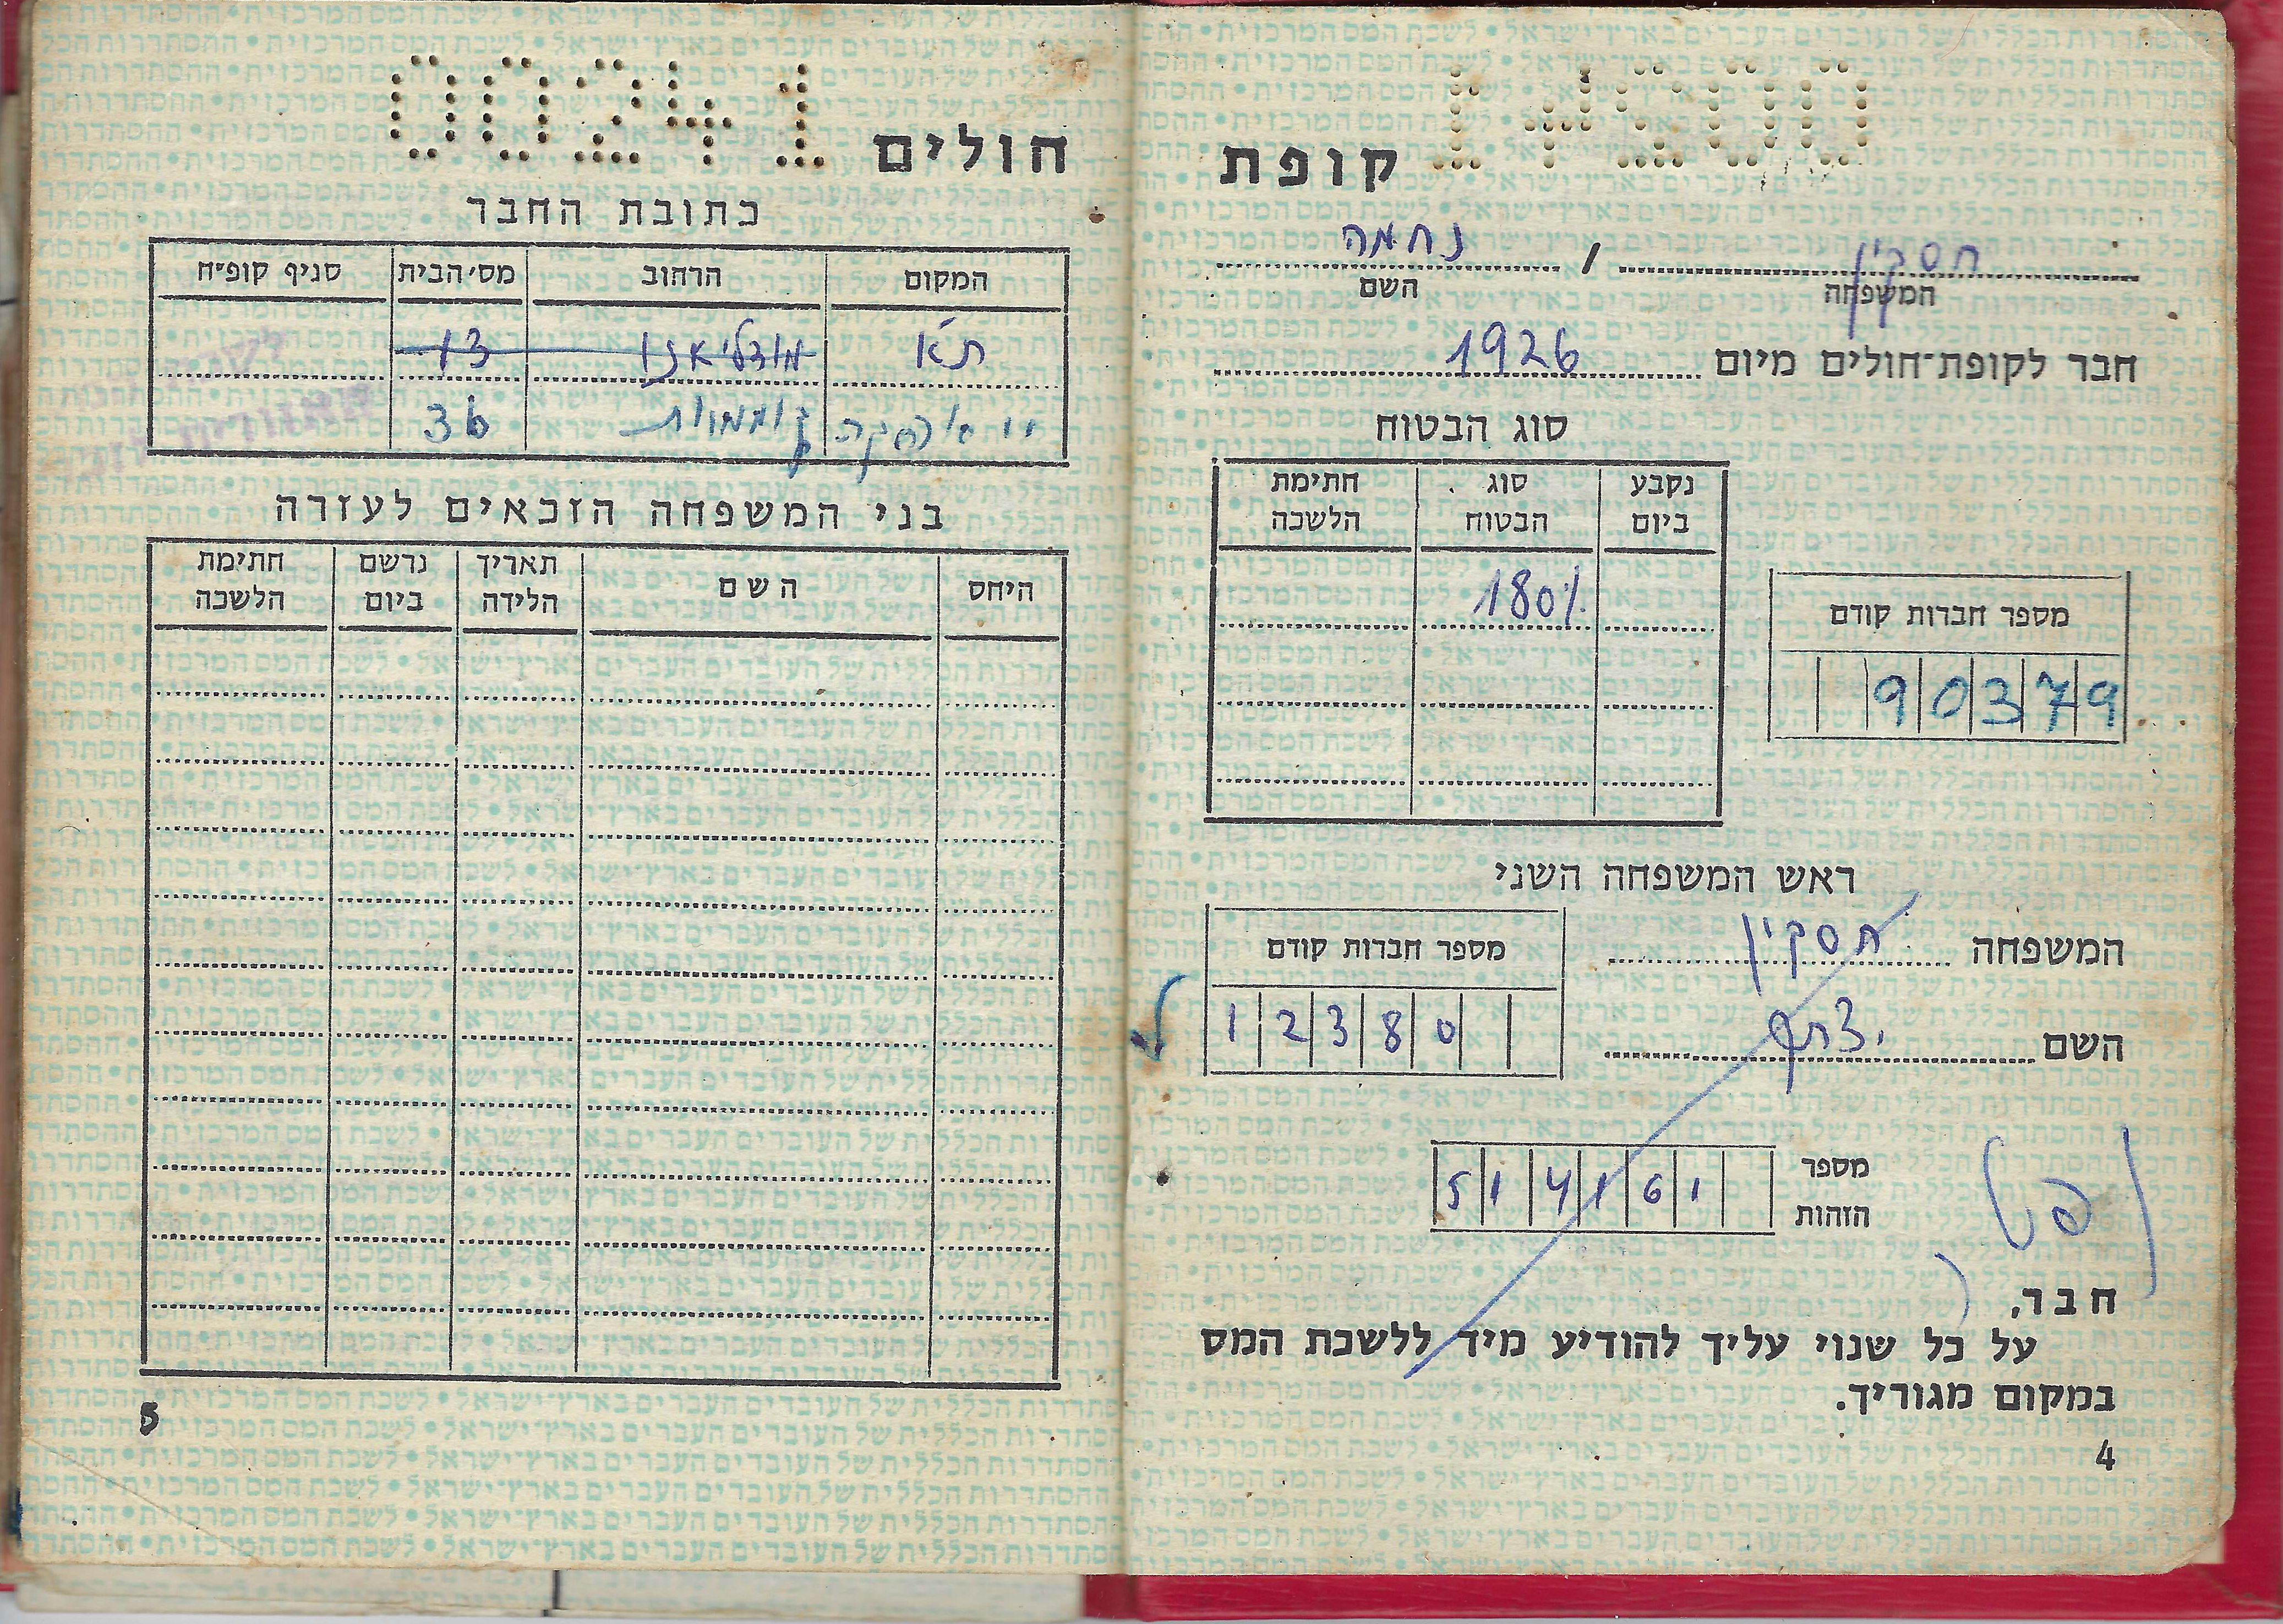 קופת
חסקין / נחמה
המשפחה השם
חבר לקופת־חולים מיום 1926
סוג הבטוח
נקבע ביום סוג הבטוח חתימת הלשכה
180%
מספר חברות קודם
90379
ראש המשפחה השני
המשפחה חסקין
מספר חברות קודם
12380
השם
מספר הזהות
514161
חבר,
על כל שנוי עליך להודיע מיד ללשכת המס
במקום מגוריך.
4
00241
חולים
כתובת החבר
המקום הרחוב מס׳הבית סניף קופ״ח
ת״א מודליאנו 13
קוממיות 36
בני המשפחה הזכאים לעזרה
היחס השם תאריך הלידה נרשם ביום חתימת הלשכה
5
ההסתדרות הכללית של העובדים העברים בארץ־ישראל • לשכת המס המרכזית